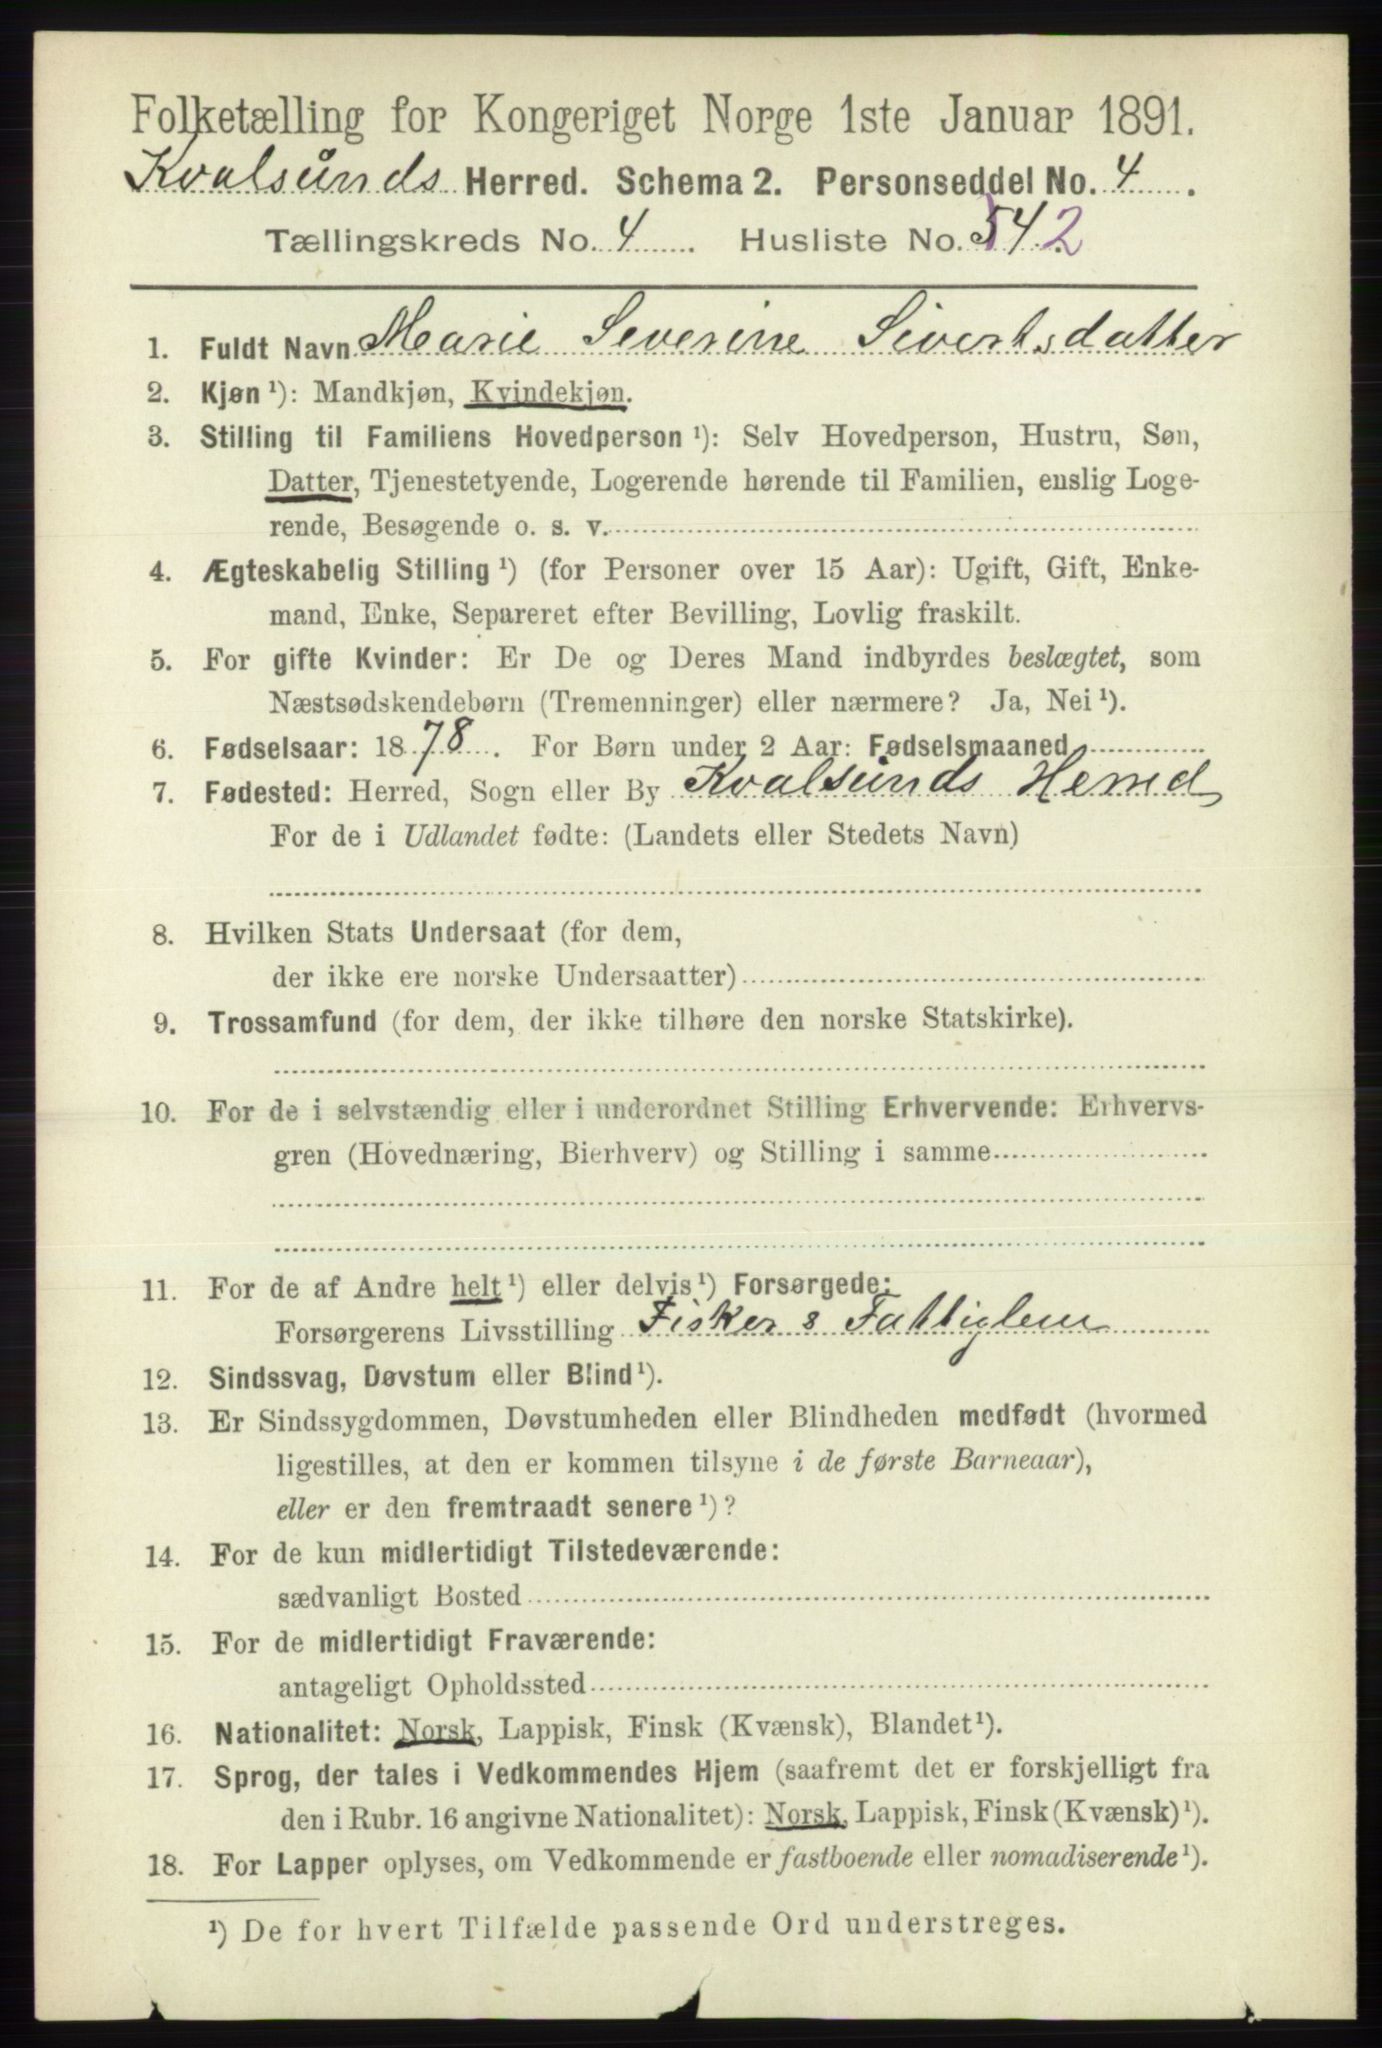 Folketælling for Kongeriget Norge 1ste Januar 1891.
Kvalsunds Herred. Schema 2. Personseddel No. 4.
Tællingskreds No. 4. Husliste No. 542
1. Fuldt Navn Marie Severine Sivertsdatter
2. Kjøn ¹): Mandkjøn, Kvindekjøn.
3. Stilling til Familiens Hovedperson ¹): Selv Hovedperson, Hustru, Søn,
Datter, Tjenestetyende, Logerende hørende til Familien, enslig Loge-
rende, Besøgende o. s. v.
4. Ægteskabelig Stilling ¹) (for Personer over 15 Aar): Ugift, Gift, Enke-
mand, Enke, Separeret efter Bevilling, Lovlig fraskilt.
5. For gifte Kvinder: Er De og Deres Mand indbyrdes beslægtet, som
Næstsødskendebørn (Tremenninger) eller nærmere? Ja, Nei ¹).
6. Fødselsaar: 1878. For Børn under 2 Aar: Fødselsmaaned
7. Fødested: Herred, Sogn eller By Kvalsunds Herred
For de i Udlandet fødte: (Landets eller Stedets Navn)
8. Hvilken Stats Undersaat (for dem,
der ikke ere norske Undersaatter)
9. Trossamfund (for dem, der ikke tilhøre den norske Statskirke).
10. For de i selvstændig eller i underordnet Stilling Erhvervende: Erhvervs-
gren (Hovednæring, Bierhverv) og Stilling i samme
11. For de af Andre helt ¹) eller delvis ¹) Forsørgede:
Forsørgerens Livsstilling Fisker & Fattiglem
12. Sindssvag, Døvstum eller Blind ¹).
13. Er Sindssygdommen, Døvstumheden eller Blindheden medfødt (hvormed
ligestilles, at den er kommen tilsyne i de første Barneaar),
eller er den fremtraadt senere ¹)?
14. For de kun midlertidigt Tilstedeværende:
sædvanligt Bosted
15. For de midlertidigt Fraværende:
antageligt Opholdssted
16. Nationalitet: Norsk, Lappisk, Finsk (Kvænsk), Blandet ¹).
17. Sprog, der tales i Vedkommendes Hjem (saafremt det er forskjelligt fra
den i Rubr. 16 angivne Nationalitet): Norsk, Lappisk, Finsk (Kvænsk) ¹).
18. For Lapper oplyses, om Vedkommende er fastboende eller nomadiserende ¹).
¹) De for hvert Tilfælde passende Ord understreges.